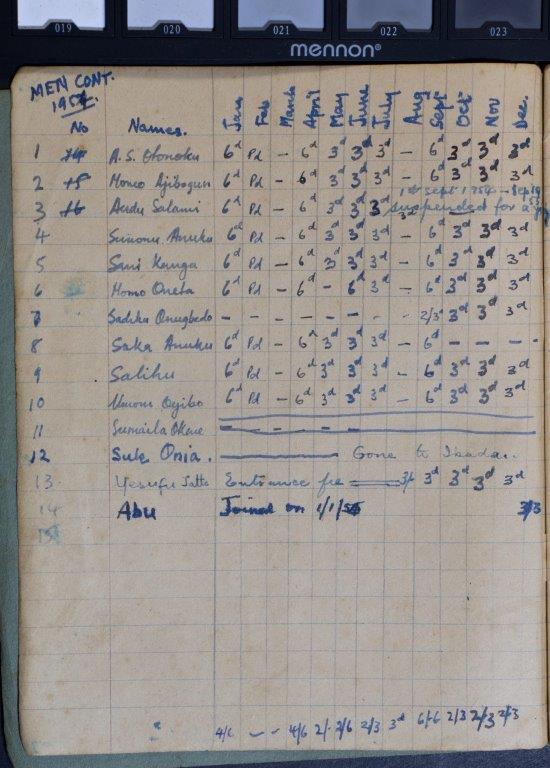 019 020 021 022 023
mennon®
MEN CONT.
1954.
No Names. Jan Feb March April May June July Aug Sept Oct Nov Dec.
1 A.S. Otonoku 6d Pd – 6d 3d 3d 3d – 6d 3d 3d 3d
2 Momo Ajibogun 6d Pd – 6d 3d 3d 3d – 6d 3d 3d 3d
1st Sept 1954 – Sept
3 Audu Salami 6d Pd – 6d 3d 3d 3 suspended for a
4 Simonu Anuku 6d Pd – 6d 3d 3d 3d – 6d 3d 3d 3d
5 Sani Kanga 6d Pd – 6d 3d 3d 3d – 6d 3d 3d 3d
6 Momo Oneta 6d Pd – 6d – 6d 3d – 6d 3d 3d 3d
7 Sadiku Onugbedo – – – – – – – – 2/3d 3d 3d 3d
8 Saka Anuku 6d Pd – 6d 3d 3d 3d – 6d – – –
9 Salihu 6d Pd – 6d 3d 3d 3d – 6d 3d 3d 3d
10 Umoru Oyibo 6d Pd – 6d 3d 3d 3d – 6d 3d 3d 3d
11 Sumaila
12 Sule Onia. Gone to Ibadan.
13 Yesufu Jatto Entrance fee 3/- 3d 3d 3d 3d
14 Abu Joined on 1/1/55 3/3
15
4/6 – – 4/6 2/- 2/6 2/3 3d 6/6 2/3 2/3 2/3